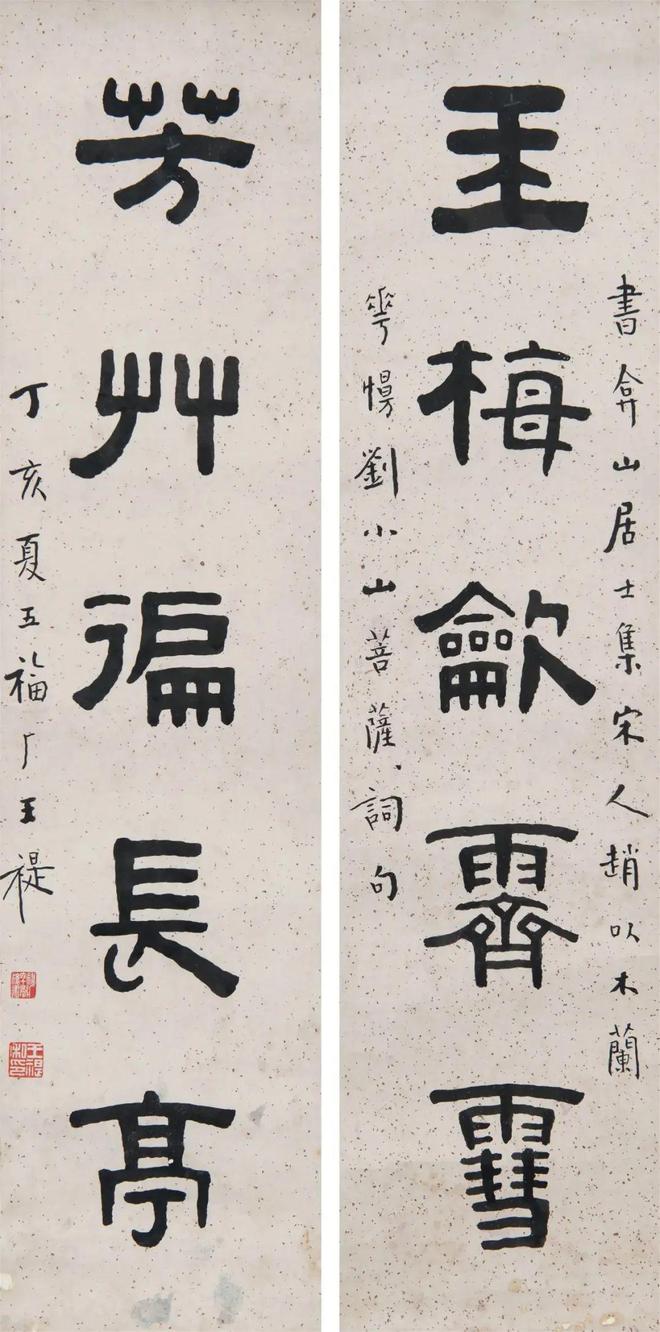 書弇山居士集宋人趙以木蘭
玉梅歛霽雪
華慢劉小山菩薩、詞句
芳艸徧長亭
丁亥夏五福厂王禔
王禔私印